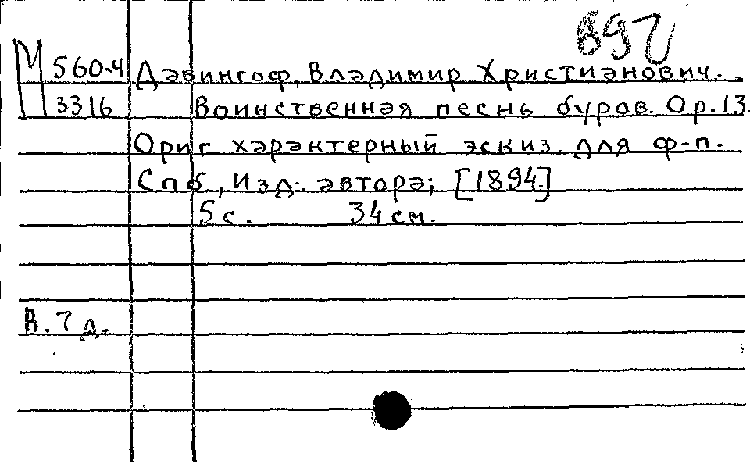 М 560-4 Давингоф, Владимир Христианович.
3316 Воинственная песнь буров. Ор.13.
Ориг характерный эскиз. для ф-п.
Спб., Изд. автора; [1894.]
5 с. 34 см.